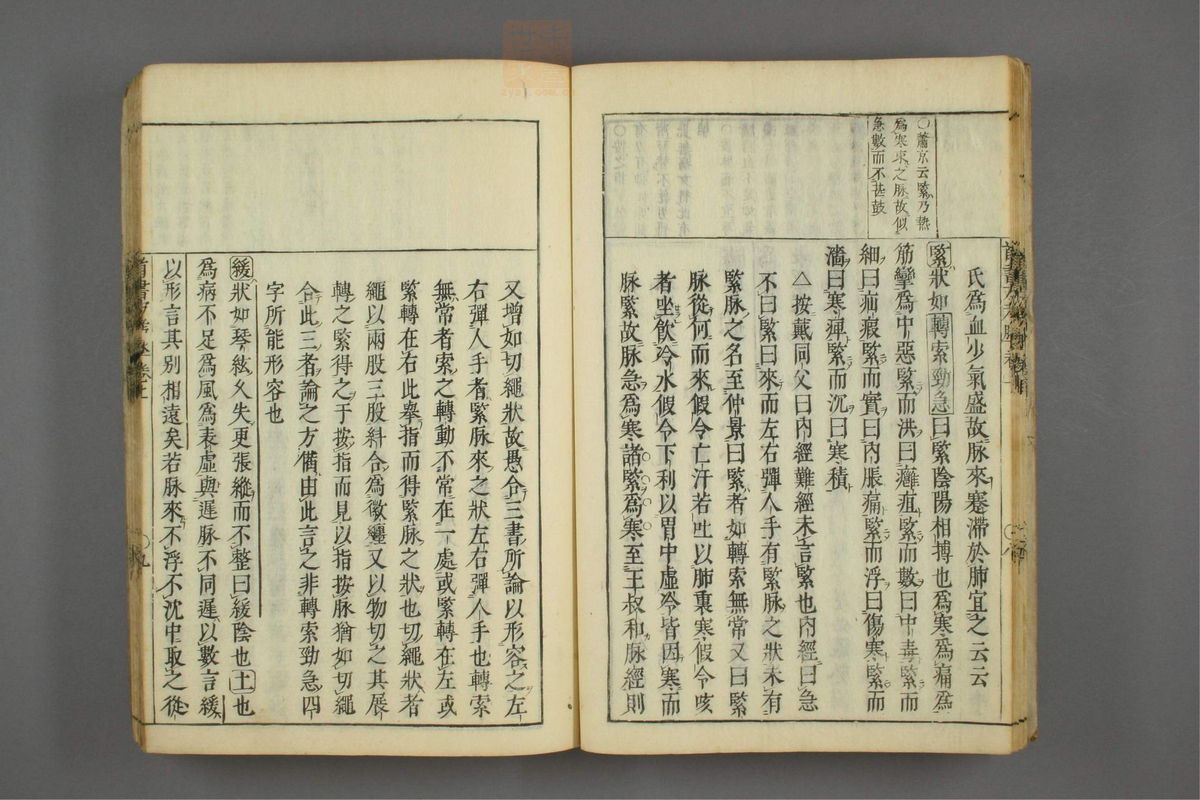 ○蕭京云緊乃熱
為寒束之脉故似
急數而不甚鼓
氏為血少氣盛故脉來蹇滯於肺宜之云云
緊狀如轉索勁急曰緊陰陽相搏也為寒為痛為
筋攣為中惡緊而洪曰癰疽緊而數曰中毒緊而
細曰疝瘕緊而實曰內脹痛緊而浮曰傷寒緊而
濇曰寒痺緊而沉曰寒積
△按戴同父曰內經難經未言緊也內經曰急
不曰緊曰來而左右彈人手有緊脉之狀未有
緊脉之名至仲景曰緊者如轉索無常又曰緊
脉從何而來假令亡汗若吐以肺裏寒假令咳
者坐飲冷水假令下利以胃中虛冷皆因寒而
脉緊故脉急為寒諸緊為寒至王叔和脉經則
又增如切繩狀故愚合三書所論以形容之左
右彈人手者緊脉來之狀左右彈人手也轉索
無常者索之轉動不常在一處或緊轉在左或
緊轉在右此舉指而得緊脉之狀也切繩狀者
繩以兩股三股糾合為徽纆又以物切之其展
轉之緊得之于按指而見以指按脉猶如切繩
合此三者論之方備由此言之非轉索勁急四
字所能形容也
緩狀如琴絃久失更張縱而不整曰緩陰也土也
為病不足為風為表虛與遲脉不同遲以數言緩
以形言其別相遠矣若脉來不浮不沈中取之從
九